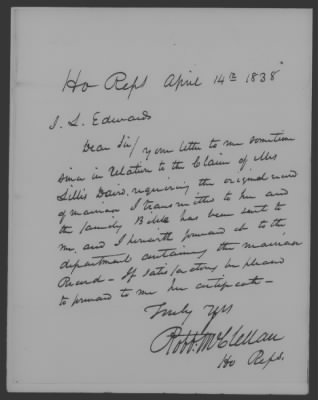 Ho Reps April 14th 1838
J. L. Edwards
Dear Sir/ your letter to me sometime
since in relation to the Claim of Mrs
Sillis requiring the original record
of marriage I transmitted to her and
the family Bible has been sent to
me and I herewith forward it to the
department containing the marriage
Record - If satisfactory be pleased
to forward to me her certificate -
Truly Yrs
Robt. McClellan
Ho Reps.